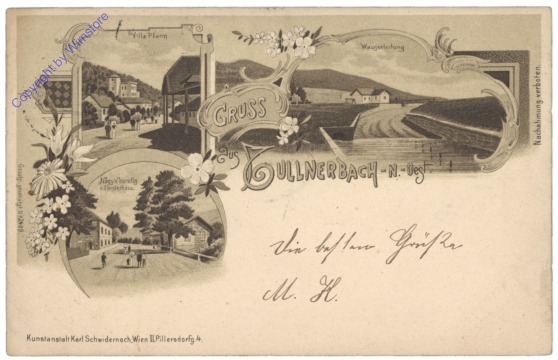 Copyright by Wimstore
Villa Pfann
Wasserleitung
GRUSS
aus
TULLNERBACH-N.-Oest.
Nachahmung verboten.
Die besten Grüße
M. H.
Kunstanstalt Karl Schwidernoch, Wien II, Pillersdorfg. 4.